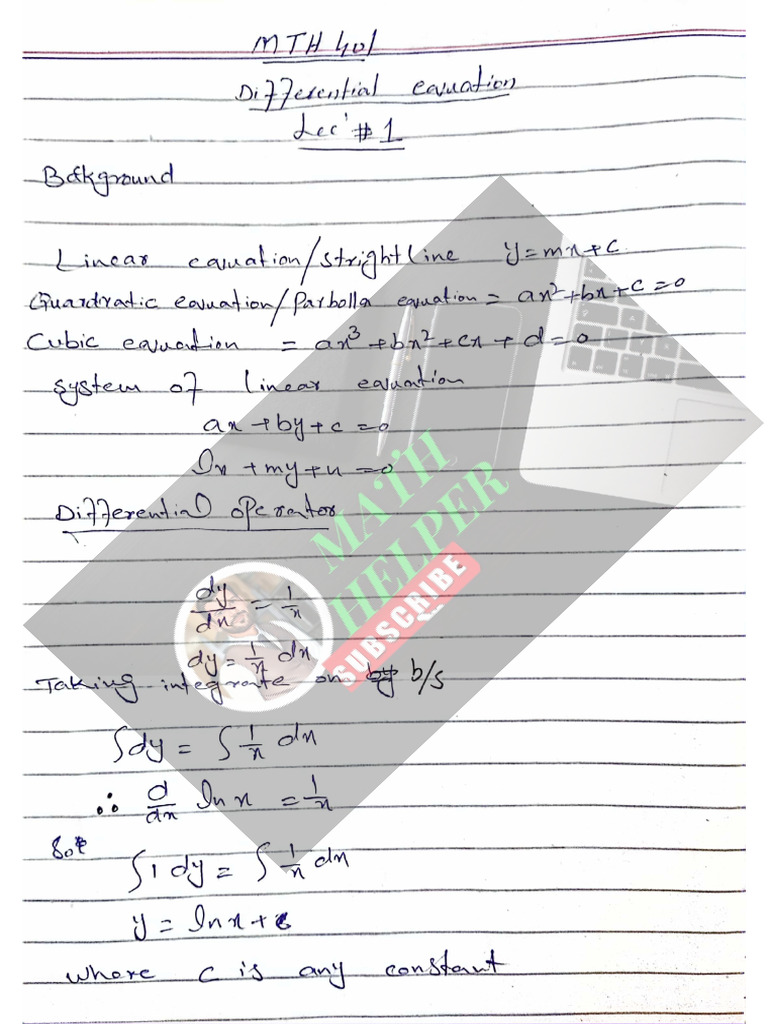 MTH 401
Differential equation
Lec # 1
Background
Linear equation/stright line y=mx+c
Quardratic equation/Parbolla equation = ax²+bx+c=0
Cubic equation = ax³+bx²+cx+d=0
system of linear equation
ax+by+c=0
lx+my+n=0
Differential operator
MATH
HELPER
SUBSCRIBE
dy/dx = 1/x
dy = 1/x dx
Taking integrate on by b/s
∫dy = ∫ 1/x dx
∴ d/dx ln x = 1/x
So
∫1 dy = ∫ 1/x dx
y = ln x + c
where c is any constant